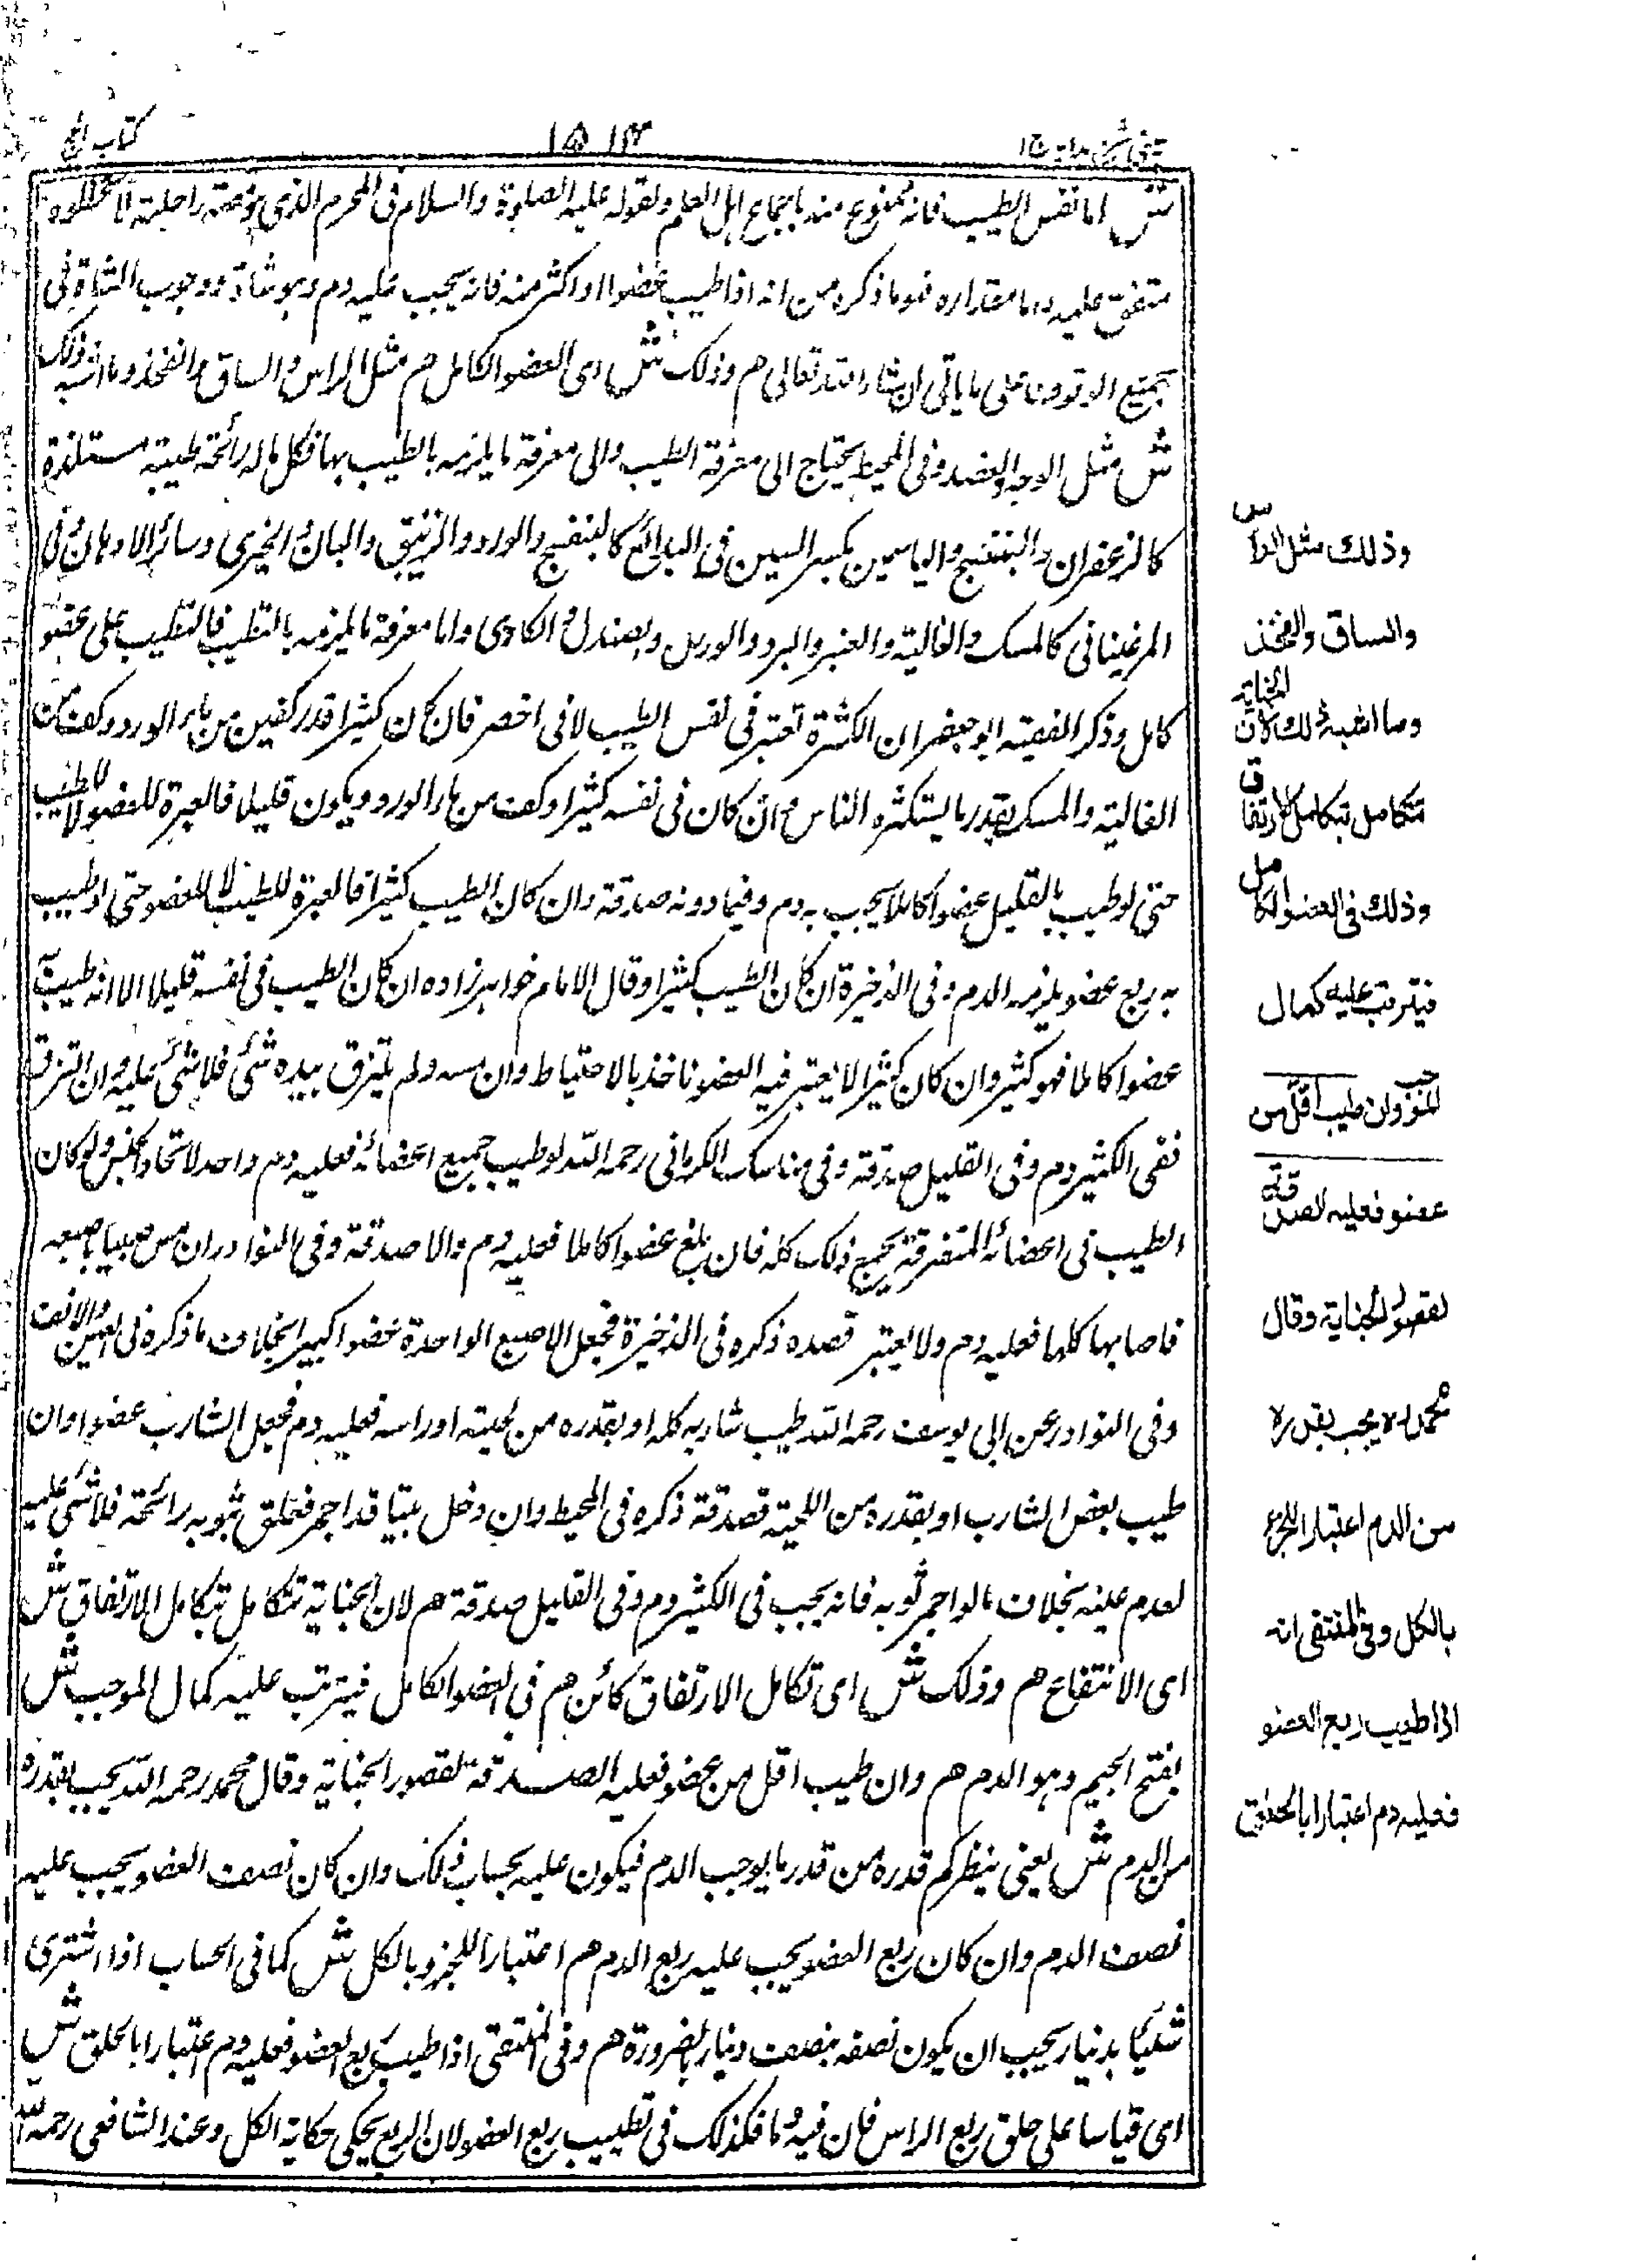 كتاب الحج
١٥١٣
ش اما نفس الطيب فانه ممنوع منه باجماع اهل العلم ولقوله عليه الصلوة والسلام فى المحرم الذى وقصته راحلته لا تحنطوه
متفق عليه واما مقداره فهو ما ذكره من انه اذا طيب عضوا او اكثر منه فانه يجب عليه دم وهو شاة ووجوب الشاة فى
جميع على ما ياتى ان شاء الله تعالى م وذلك ش اى العضو الكامل م مثل الراس والساق والفخذ وما اشبه ذلك
ش مثل الوجه والعضد وفى المحيط يحتاج الى معرفة الطيب والى معرفة ما يلزمه بالطيب بها فكل ماله رائحة طيبة مستلذة
كالزعفران والبنفسج والياسمين بكسر السين فى البدائع كالبنفسج والورد والزنبق والبان والخيرى وسائر الادهان فى
المرغينانى كالمسك والغالية والعنبر والورس والصندل والكادى واما معرفة ما يلزمه بالتطيب فالتطيب على عضو
كامل وذكر الفقيه ابو جعفر ان الكثرة تعتبر فى نفس الطيب لا فى العضو فان كان كثيرا قدر كفين من ماء الورد وكف من
الغالية والمسك بقدر ما يستكثره الناس وان كان فى نفسه كثيرا وكف من ماء الورد ويكون قليلا فالعبرة للعضو لا للطيب
حتى لو طيب بالقليل عضوا كاملا يجب به دم وفيما دونه صدقة وان كان الطيب كثيرا فالعبرة للطيب لا للعضو حتى لو طيب
به ربع عضو يلزمه الدم وفى الذخيرة ان كان الطيب كثيرا وقال الامام خواهرزاده ان كان الطيب فى نفسه قليلا الا انه طيب به
عضوا كاملا فهو كثير وان كان كثيرا لا يعتبر فيه العضو ناخذ بالاحتياط وان مسه ولم يلتزق بيده شئ فلا شئ عليه وان التزق
ففى الكثير دم وفى القليل صدقة وفى مناسك الكرمانى رحمه الله لو طيب جميع اعضائه فعليه دم واحد لاتحاد الجنس ولو كان
الطيب فى اعضائه المتفرقة يجمع ذلك كله فان بلغ عضوا كاملا فعليه دم والا صدقة وفى النوادر ان مس طيبا باصبعه
فاصابها كلها فعليه دم ولا يعتبر قصده ذكره فى الذخيرة فجعل الاصبع الواحدة عضوا كبيرا بخلاف ما ذكره فى العين والانف
وفى النوادر عن ابى يوسف رحمه الله طيب شاربه كله او بقدره من لحيته او راسه فعليه دم فجعل الشارب عضوا وان
طيب بعض الشارب او بقدره من اللحية فصدقة ذكره فى المحيط وان دخل بيتا قد اجمر فعلق بثوبه رائحة فلا شئ عليه
لعدم عينه بخلاف ما لو اجمر ثوبه فانه يجب فى الكثير دم وفى القليل صدقة هم لان الجناية تتكامل بتكامل الارتفاق ش
اى الانتفاع هم وذلك ش اى تكامل الارتفاق كائن هم فى العضو الكامل فيترتب عليه كمال الموجب ش
بفتح الجيم وهو الدم هم وان طيب اقل من عضو فعليه الصدقة لقصور الجناية وقال محمد رحمه الله يجب بقدره
من الدم ش يعنى ينظر كم قدره من قدر ما يوجب الدم فيكون عليه بحساب ذلك وان كان نصف العضو يجب عليه
نصف الدم وان كان ربع العضو يجب عليه ربع الدم هم اعتبارا للجزء بالكل ش كما فى الحساب اذا اشترى
شيئا بدينار يجب ان يكون نصفه بنصف دينار بالضرورة هم وفى المنتقى اذا طيب ربع العضو فعليه دم اعتبارا بالحلق ش
اى قياسا على حلق ربع الراس فان فيه دما فكذلك فى تطييب ربع العضو لان الربع يحكى حكاية الكل وعند الشافعى رحمه الله
وذلك مثل الراس
والساق والفخذ
وما اشبه ذلك لان الجناية
تتكامل بتكامل الارتفاق
وذلك فى العضو الكامل
فيترتب عليه كمال
الموجب وان طيب اقل من
عضو فعليه الصدقة
لقصور الجناية وقال
محمد يجب بقدره
من الدم اعتبارا للجزء
بالكل وفى المنتقى انه
اذا طيب ربع العضو
فعليه دم اعتبارا بالحلق